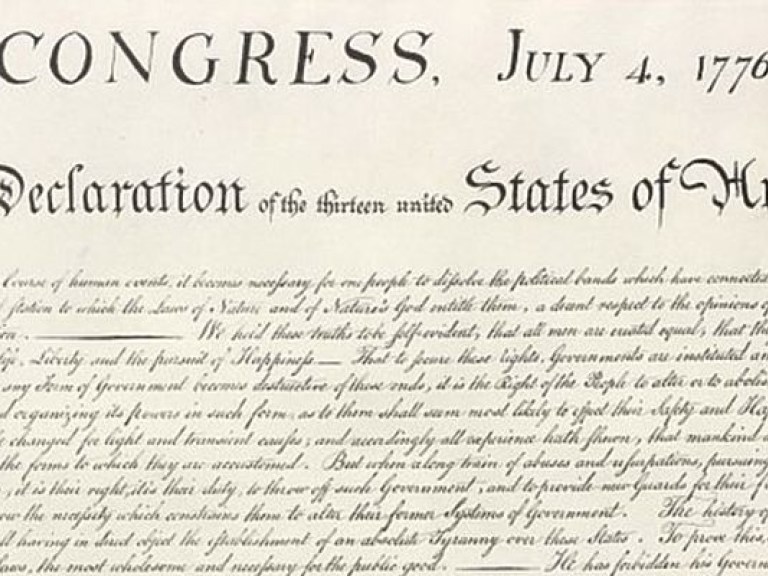 CONGRESS, JULY 4, 1776
Declaration of the thirteen united States of Am
Course of human events, it becomes necessary for one people to dissolve the political bands which have connected
station to which the Laws of Nature and of Nature's God entitle them, a decent respect to the opinions of
We hold these truths to be self-evident, that all men are created equal, that the
Life, Liberty and the pursuit of Happiness — That to secure these rights, Governments are instituted
any Form of Government becomes destructive of these ends, it is the Right of the People to alter or to abolish
organizing its powers in such form, as to them shall seem most likely to effect their Safety and Hap
changed for light and transient causes; and accordingly all experience hath shewn, that mankind
the forms to which they are accustomed. But when a long train of abuses and usurpations, pursuing
, it is their right, it is their duty, to throw off such Government, and to provide new Guards for their
the necessity which constrains them to alter their former Systems of Government. The history of
having in direct object the establishment of an absolute Tyranny over these States. To prove this,
Laws, the most wholesome and necessary for the public good. — He has forbidden his Govern